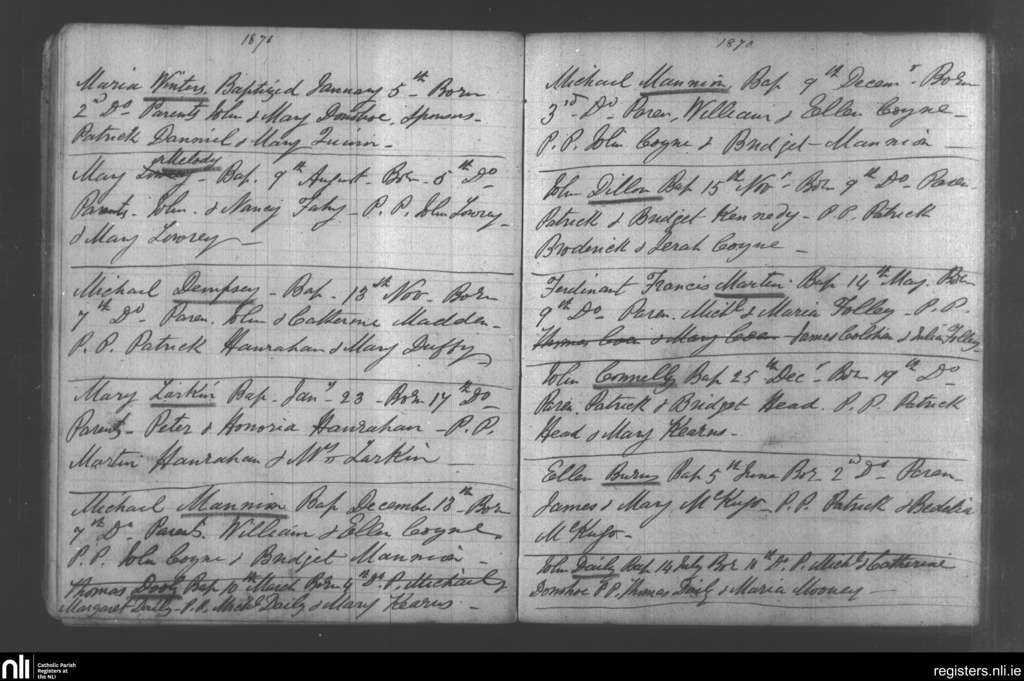 1870
Maria Winters Baptized January 5th Born
2nd Do Parents John & Mary Donohoe, Sponsors
Patrick Danniel & Mary Quinn
or Melody
Mary Lowry Bap. 9th August Born 5th Do
Parents John & Nancy Fahy P.P. John Lowrey
& Mary Lowrey
Michael Dempsey Bap. 13th Nov. Born
7th Do Paren. John & Catherine Madden
P.P. Patrick Hanrahan & Mary Duffy
Mary Larkin Bap. Jany 23 Born 17th Do
Parents Peter & Honoria Hanrahan P.P.
Martin Hanrahan & Mrs Larkin
Michael Mannion Bap December 13th Born
7th Do Parents William & Ellen Coyne
P.P. John Coyne & Bridget Mannion
Thomas Bap 10th March Born 4th Do P. Michael
Margaret Daily P.P. Michl Daily & Mary Kearns
1870
Michael Mannion Bap 9th Decemr Born
3rd Do Paren, William & Ellen Coyne
P.P. John Coyne & Bridget Mannion
John Dillon Bap 15th Novr Bor 9th Do Paren.
Patrick & Bridget Kennedy P.P. Patrick
Broderick & Serah Coyne
Ferdinant Francis Martin Bap 14th May. Born
9th Do Paren. Michl & Maria Folley P.P.
Thomas Coen & Mary Coen James & Julia Folley
John Connelly Bap 25th Decr Bor 19th Do
Paren. Patrick & Bridget Head. P.P. Patrick
Head & Mary Kearns
Ellen Burns Bap 5th June Bor 2nd Do Paren
James & Mary McKugo P.P. Patrick & Bedelia
McKugo
John Daily Bap. 14 July Bor 10th Do. P. Michl & Catherine
Donohoe P.P. Thomas Daily & Maria Mooney
nli
Catholic Parish
Registers at
the NLI
registers.nli.ie